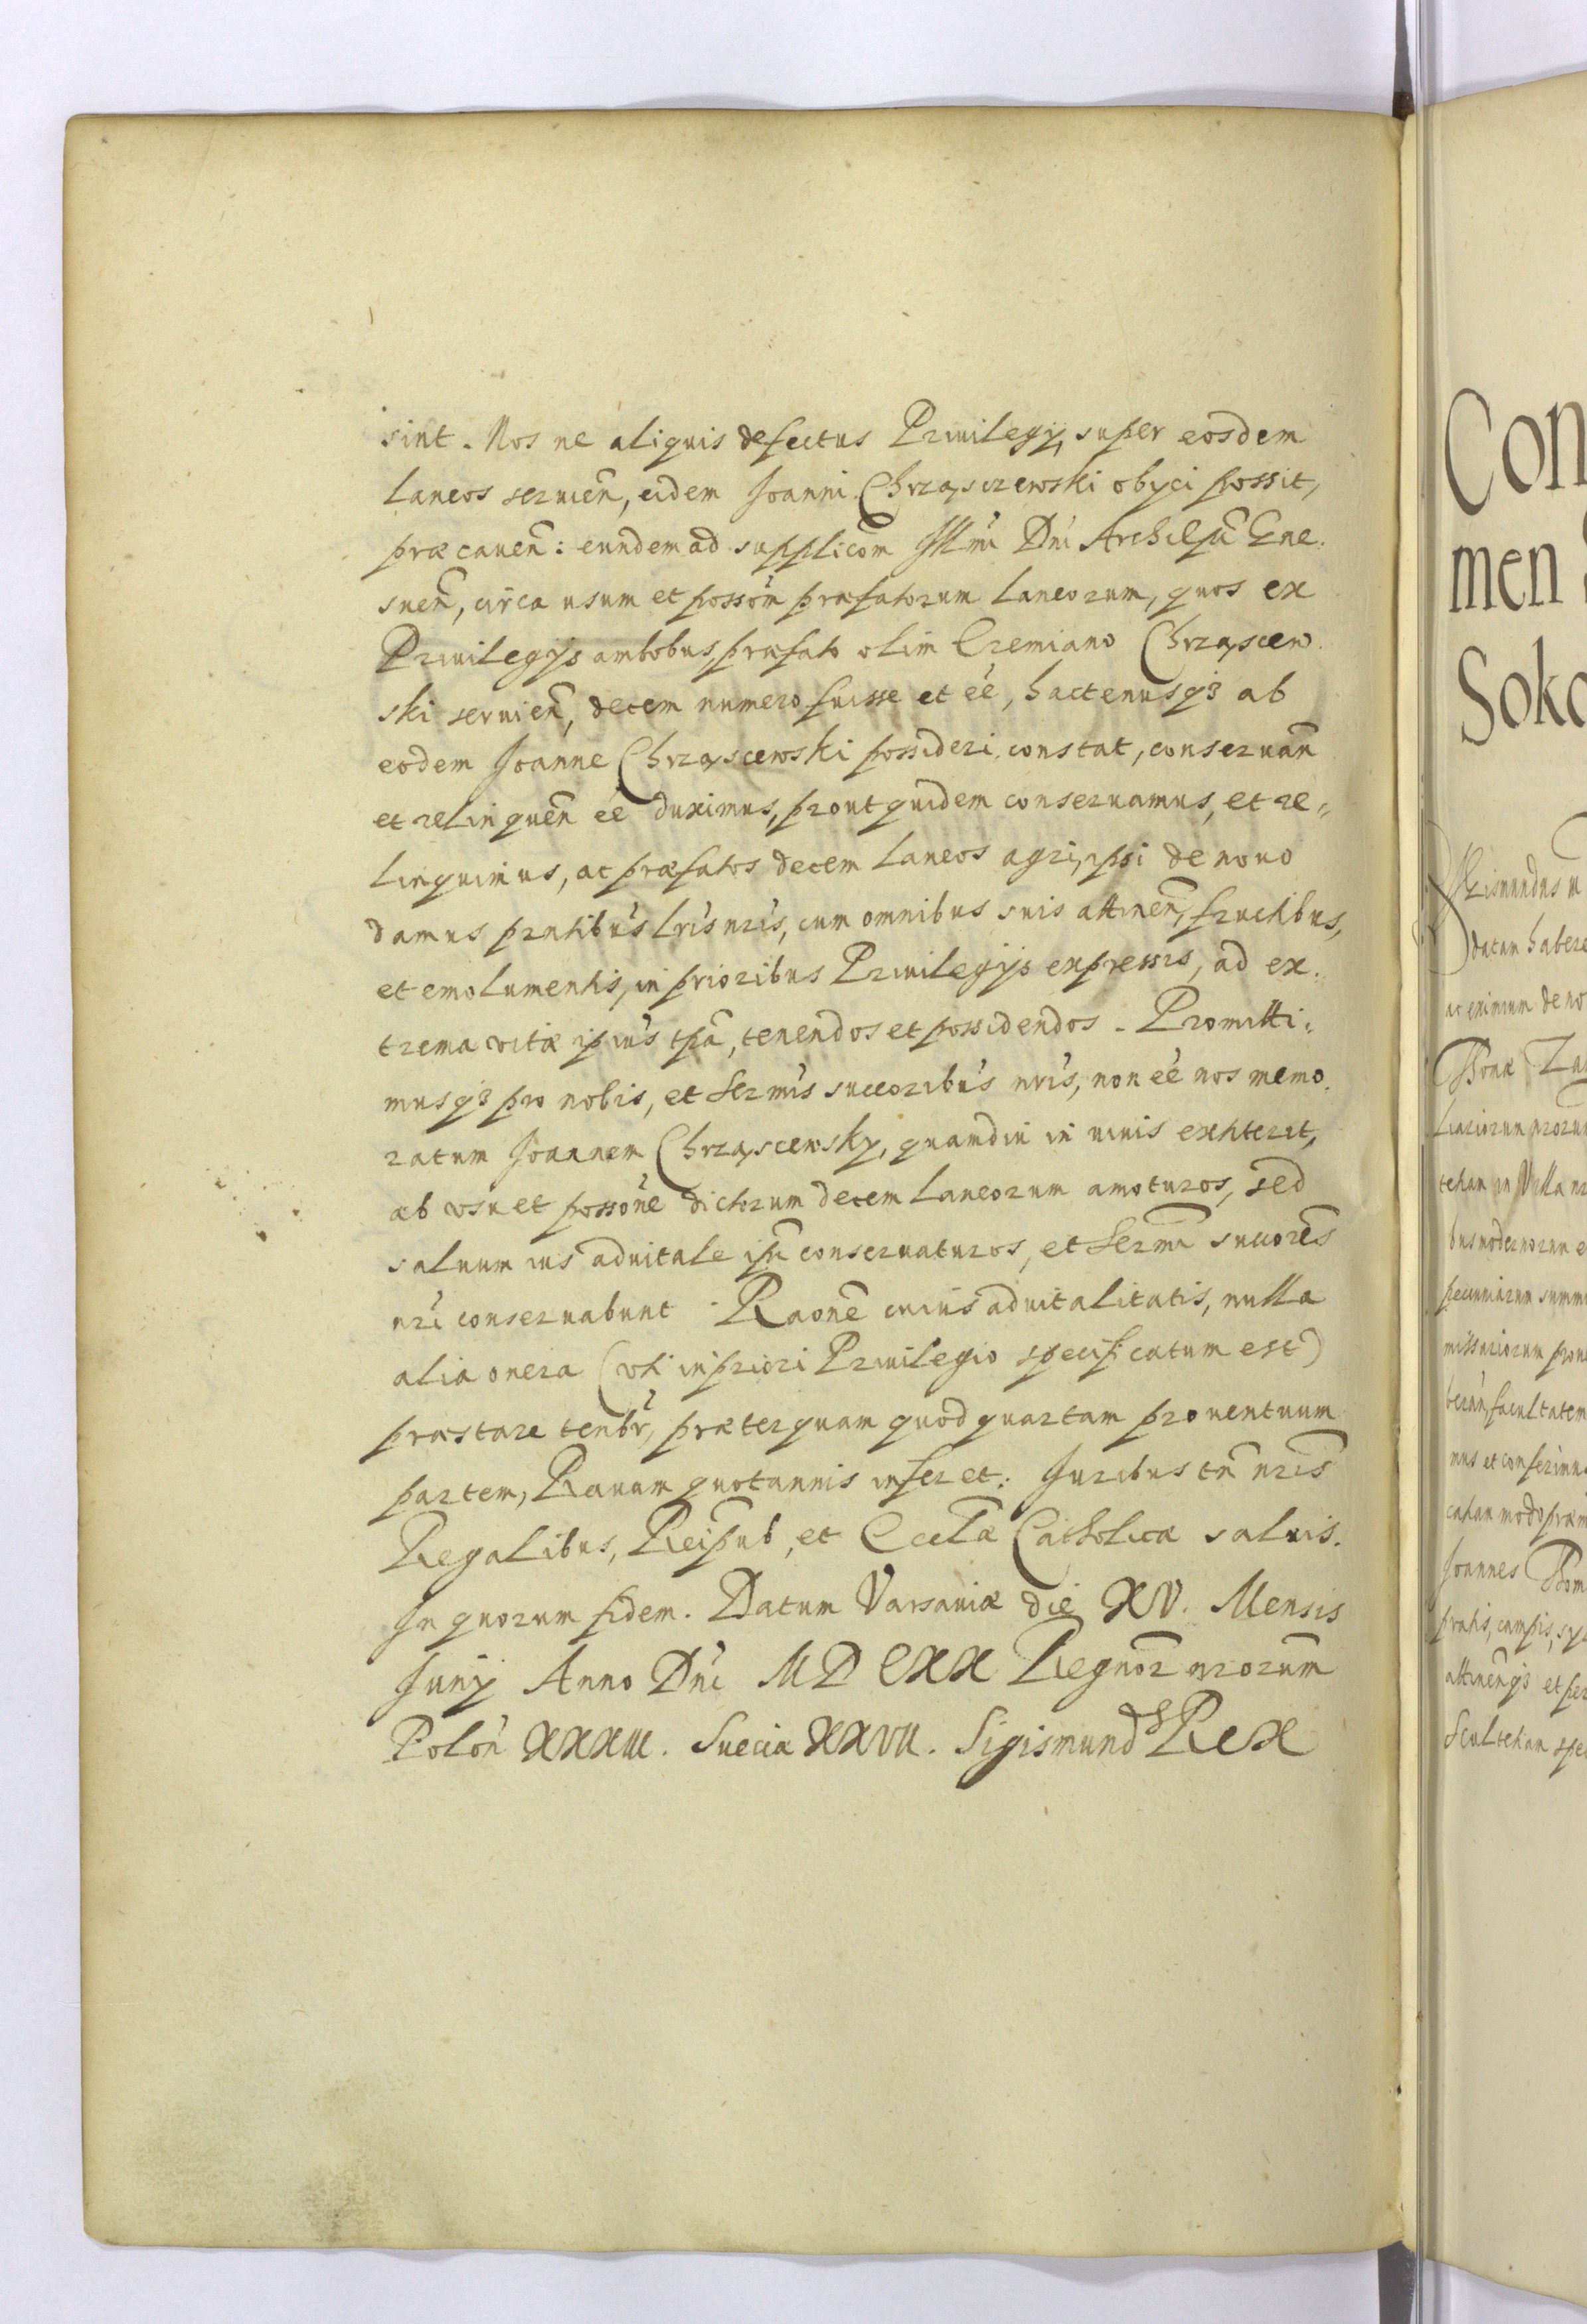 sint. Nos ne aliquis defectus Priuilegij, super eosdem
laneos seruien̄, eidem Joanni Chrząsczewski obijci possit,
præcauen̄: eundem ad supplicōm Illmi Dn̄i Archiep̄i Gne.
snen̄, circa usum et possōm præfatorum laneorum, quos ex
Priuilegijs ambobus, præfato olim Cremiano Chrząscew.
ski seruien̄, decem numero fuisse et ēē, hactenusq3 ab
eodem Joanne Chrząscewski possideri constat, conseruan̄
et relinquen̄ ēē duximus, prout quidem conseruamus, et re„
linquimus, ac præfatos decem laneos agri, ipsi de nouo
damus pn̄tibus lr̄is nr̄is, cum omnibus suis attinen̄, fructibus,
et emolumentis, in prioribus Priuilegijs expressis, ad ex:
trema vitæ ipius tp̄a, tenendos et possidendos. Promitti:
musq3 pro nobis, et Sermis succoribus nr̄is, non ēē nos memo.
ratum Joannem Chrząscewsky, quamdiu in viuis extiterit,
ab vsu et possōne dictorum decem laneorum amoturos, sed
saluum ius aduitale ip̄i conseruaturos, et Sermi succorēs
nr̄i conseruabunt. Raōne cuius aduitalitatis, nulla
alia onera (vti in priori Priuilegio specificatum est)
præstare tenbr̄, præterquam quod quartam prouentuum
partem, Rauam quotannis inferet. Juribus tn̄ nr̄is
Regalibus, Reipub, et Eccl̄æ Catholicæ saluis.
In quorum fidem. Datum Varsauiæ die XV. Mensis
Junij Anno Dn̄i MDCXX Regnor nrorum̄
Polon̄ XXXIII. Sueciæ XXVII. Sigismundq Rex
Con
men
Soko
datam habere
Joannes